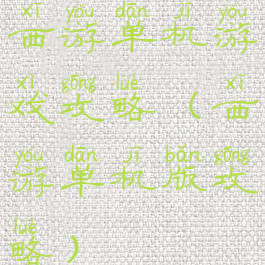 xī yóu dān jī yóu
西游单机游
xì gōng lüè xī
戏攻略（西
yóu dān jī bǎn gōng
游单机版攻
lüè
略）